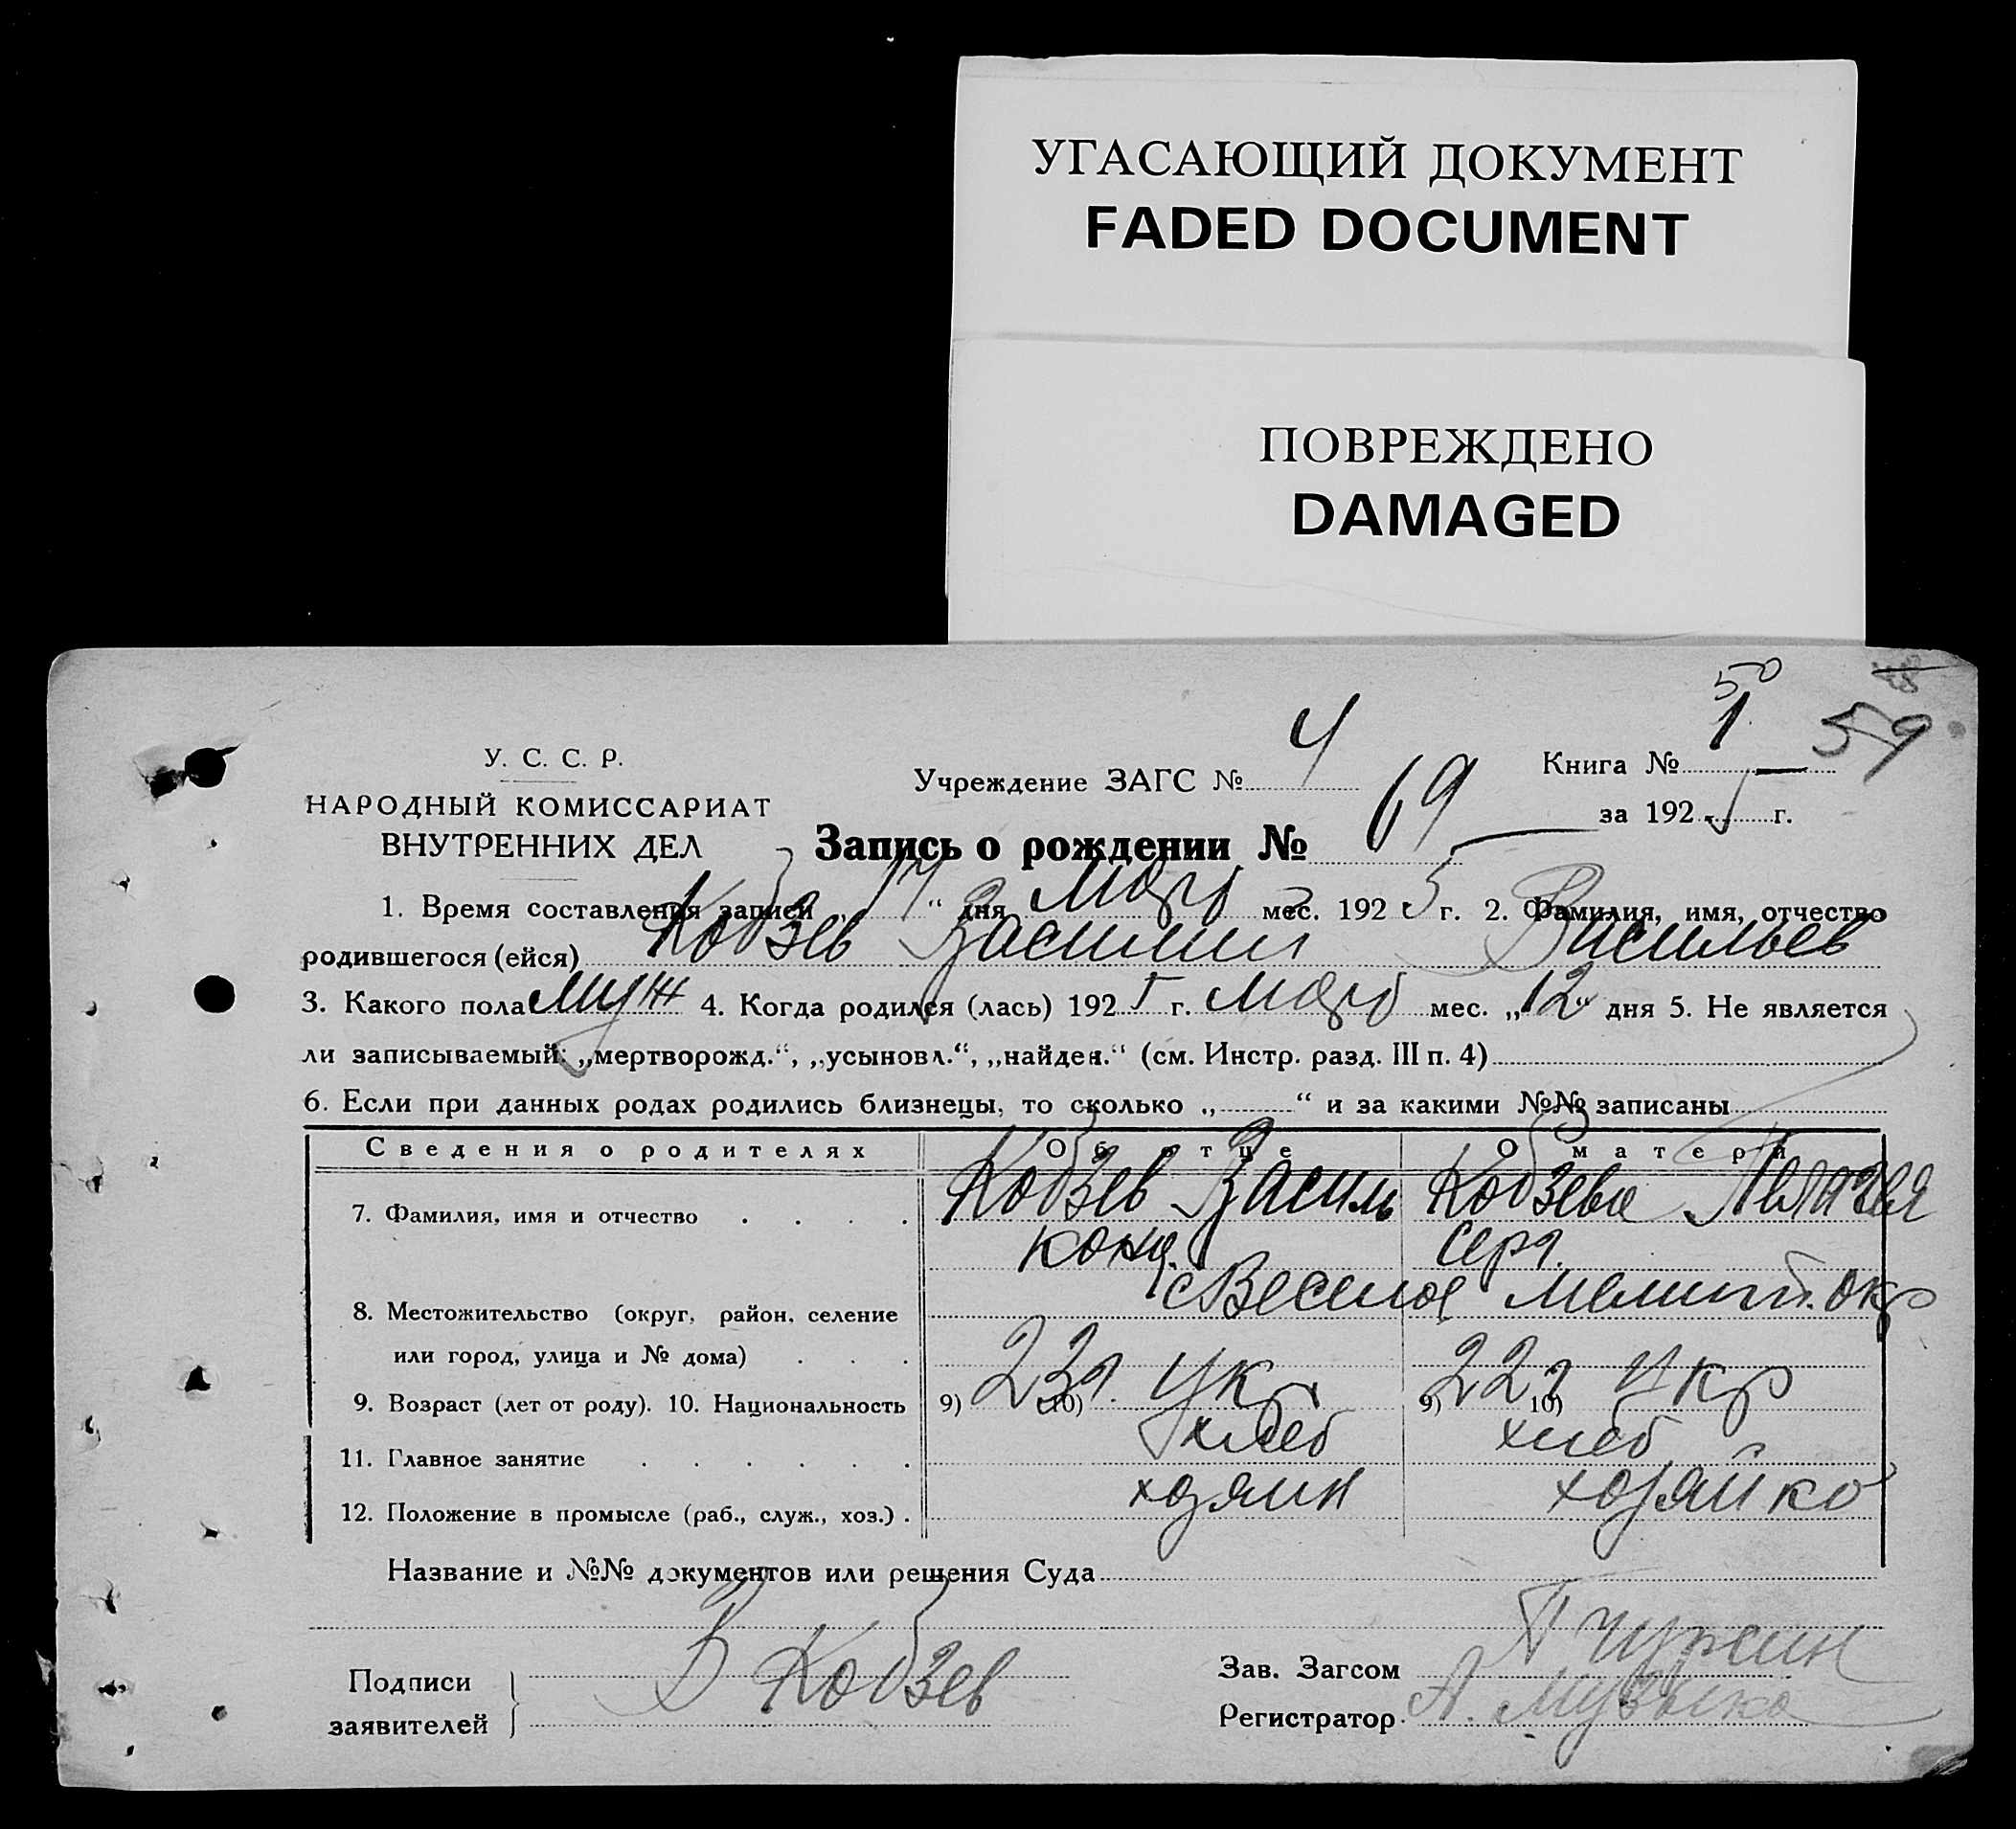 УГАСАЮЩИЙ ДОКУМЕНТ
FADED DOCUMENT
ПОВРЕЖДЕНО
DAMAGED
50
59
У. С. С. Р.
НАРОДНЫЙ КОМИССАРИАТ
ВНУТРЕННИХ ДЕЛ
Учреждение ЗАГС № 4
Книга № 1
за 1925 г.
Запись о рождении № 69
1. Время составления записи „17“ дня март мес. 1925 г. 2. Фамилия, имя, отчество
родившегося (ейся) Кобзев Василий Васильев
3. Какого пола муж 4. Когда родился (лась) 1925 г. март мес. „12“ дня 5. Не является
ли записываемый: „мертворожд.“, „усыновл.“, „найден.“ (см. Инстр. разд. III п. 4)
6. Если при данных родах родились близнецы, то сколько „ “ и за какими №№ записаны
Сведения о родителях Об отце О матери
7. Фамилия, имя и отчество Кобзев Василь Кобзева Пелагея
серг.
8. Местожительство (округ, район, селение с Веселое Мелитоп. окр
или город, улица и № дома)
9. Возраст (лет от роду). 10. Национальность 9) 23 л. 10) Укр 9) 22 л 10) Укр
11. Главное занятие хлеб хлеб
12. Положение в промысле (раб., служ., хоз.) хозяин хозяйка
Название и №№ документов или решения Суда
Подписи
заявителей
В Кобзев
Зав. Загсом
Регистратор А. Музыка